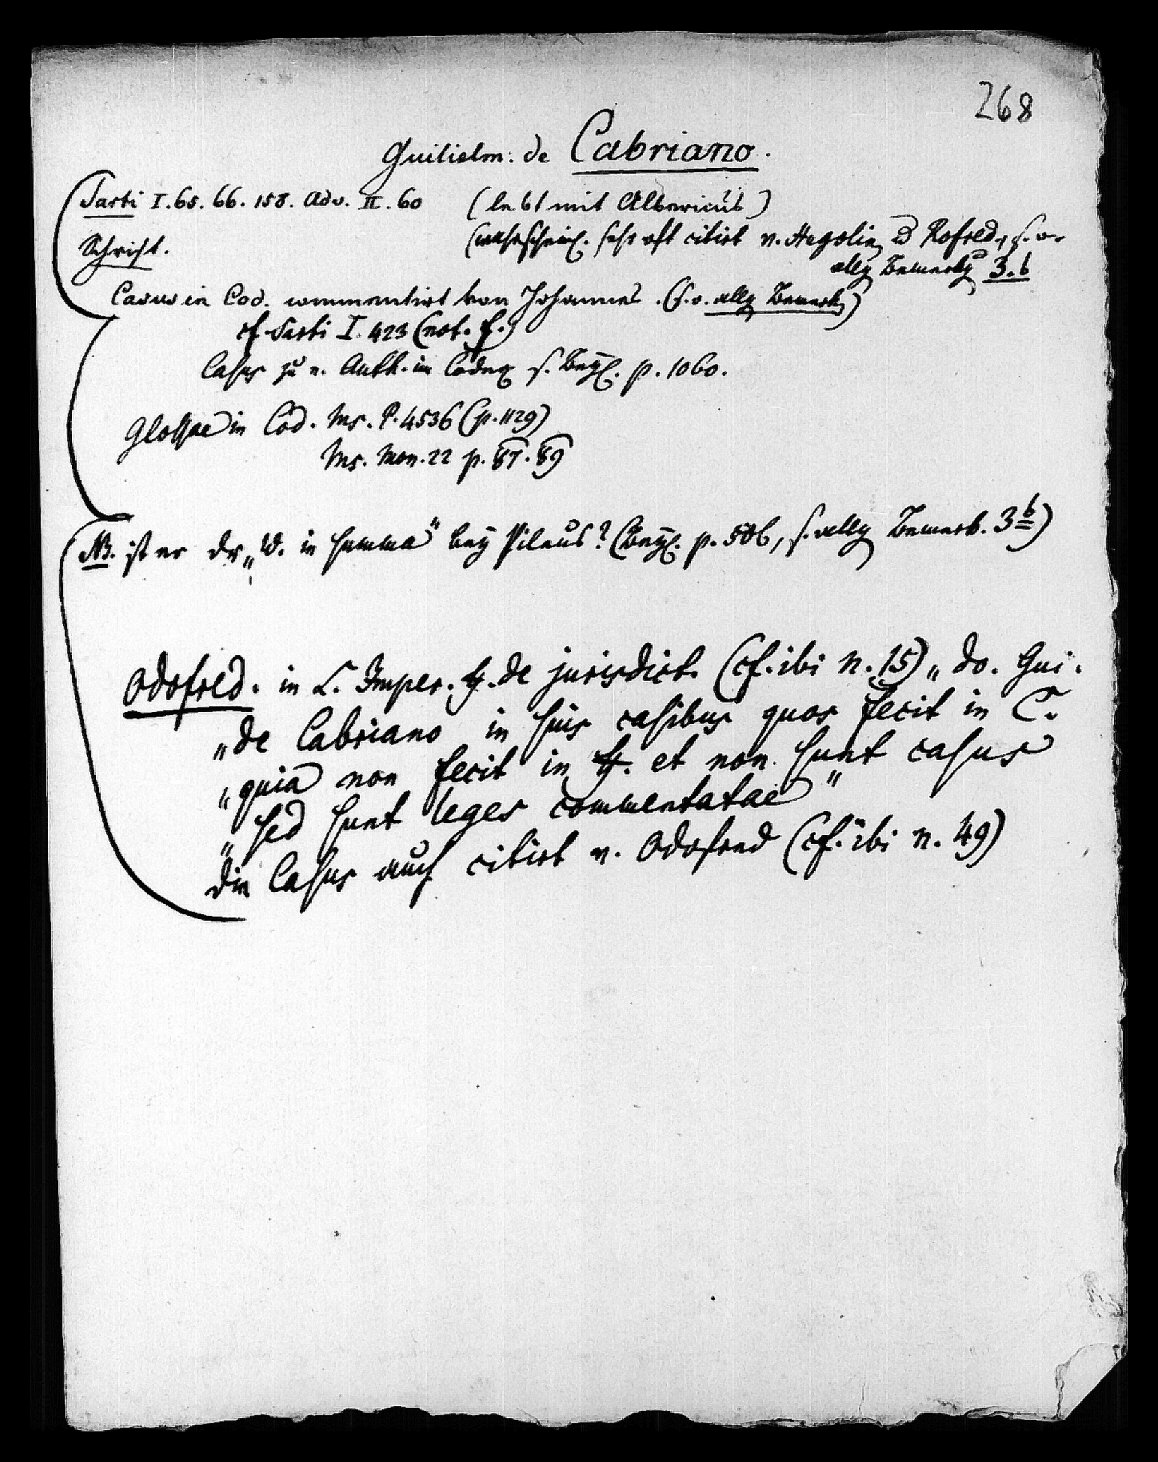 268
Guilielm: de Cabriano.
Sarti I. 65. 66. 158. Adv. II. 60 (lebt mit Albericus)
(wahrscheinl. sehr oft citirt v. Hugolin u Rofred., s. o.
Schrift.
allg Bemerkg 3.b
Casus in Cod. commentirt von Johannes. (s. o. allg Bemerk)
cf. Sarti I. 423 (not. f.)
Casus zu e. Auth. im Codex s. Beyl. p. 1060.
Glossae in Cod. Ms. P. 4536 (p. 1129)
Ms. Mon. 22 p. 87. 89
NB. ist er der „W. in summa" bey Pileus? (Beyl. p. 506, s. allg Bemerk. 3 b)
Odofred. in L. Imper. ff. de jurisdict. (cf. ibi n. 15) „do. Gui.
„de Cabriano in suis casibus quos fecit in C.
„quia non fecit in ff. et non sunt casus
„sed sunt leges commentatae"
die Casus auch citirt v. Odofred (cf. ibi n. 49)